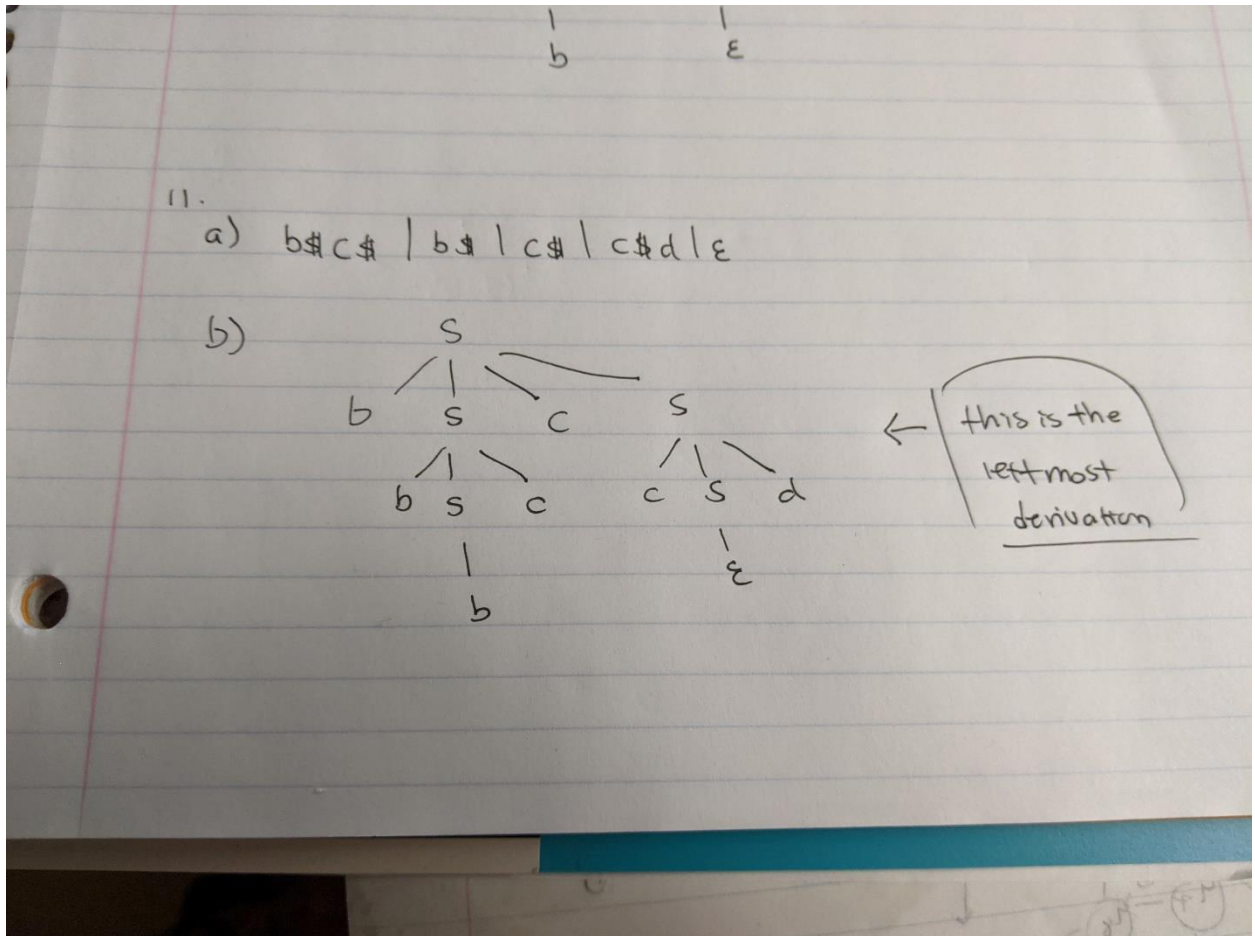 b ε
11.
a) b$c$ | b$ | c$ | c$d | ε
b) S
b S c S
b S c c S d
b ε
this is the
leftmost
derivation